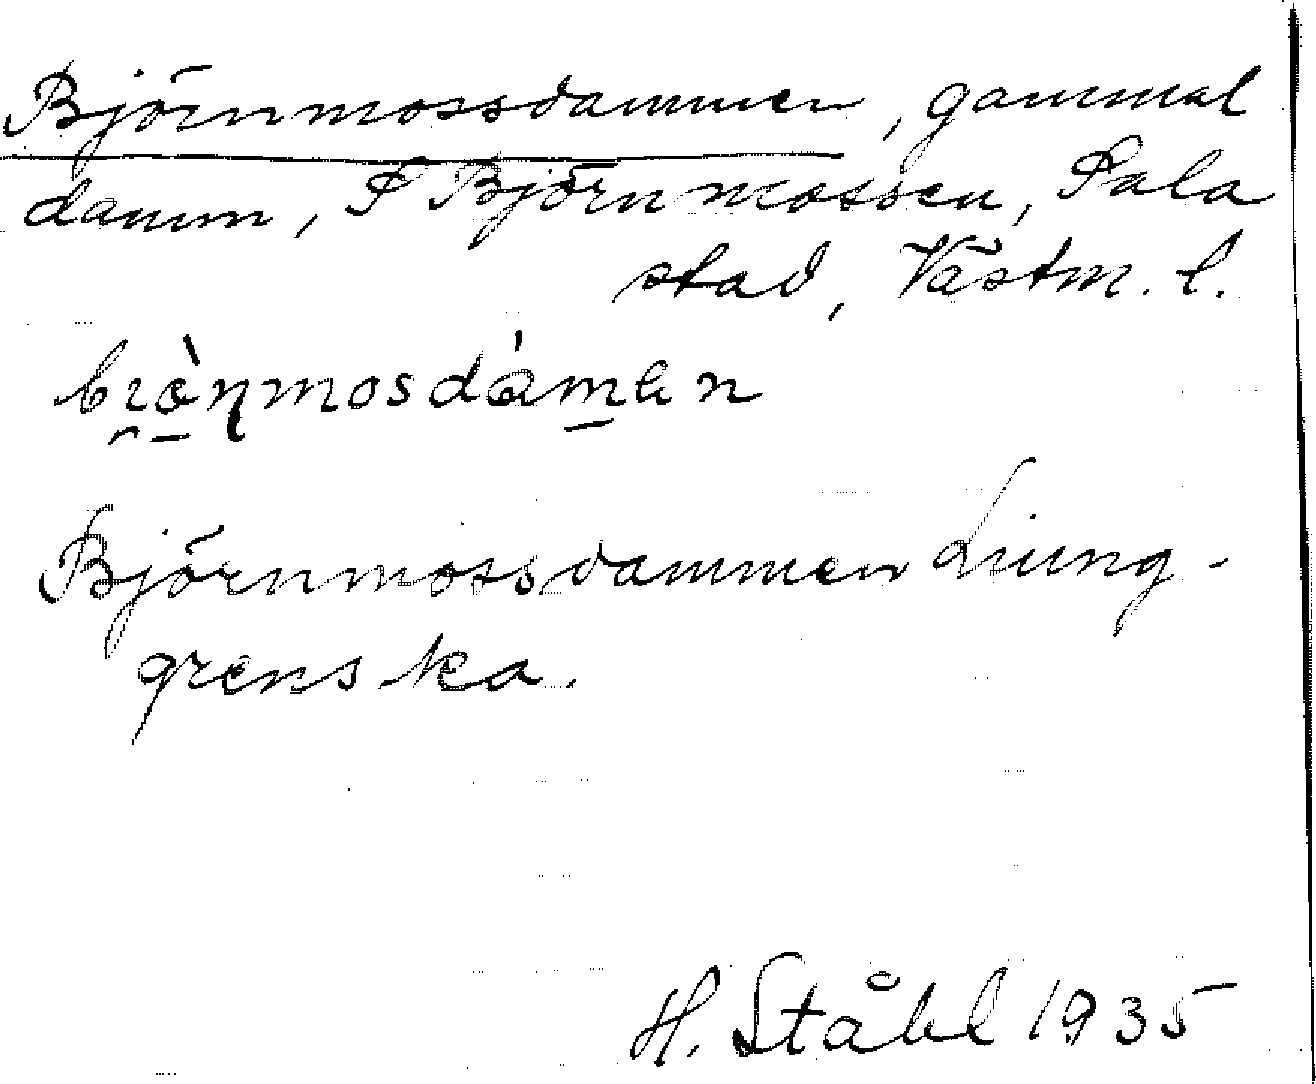 Björnmossdammen, gammal
damm, S Björnmossen, Sala
stad, Västm. l.
bi̯ò̱ɳmosdám̱en
Björnmossdammen Liung-
grenska.
H. Ståhl 1935